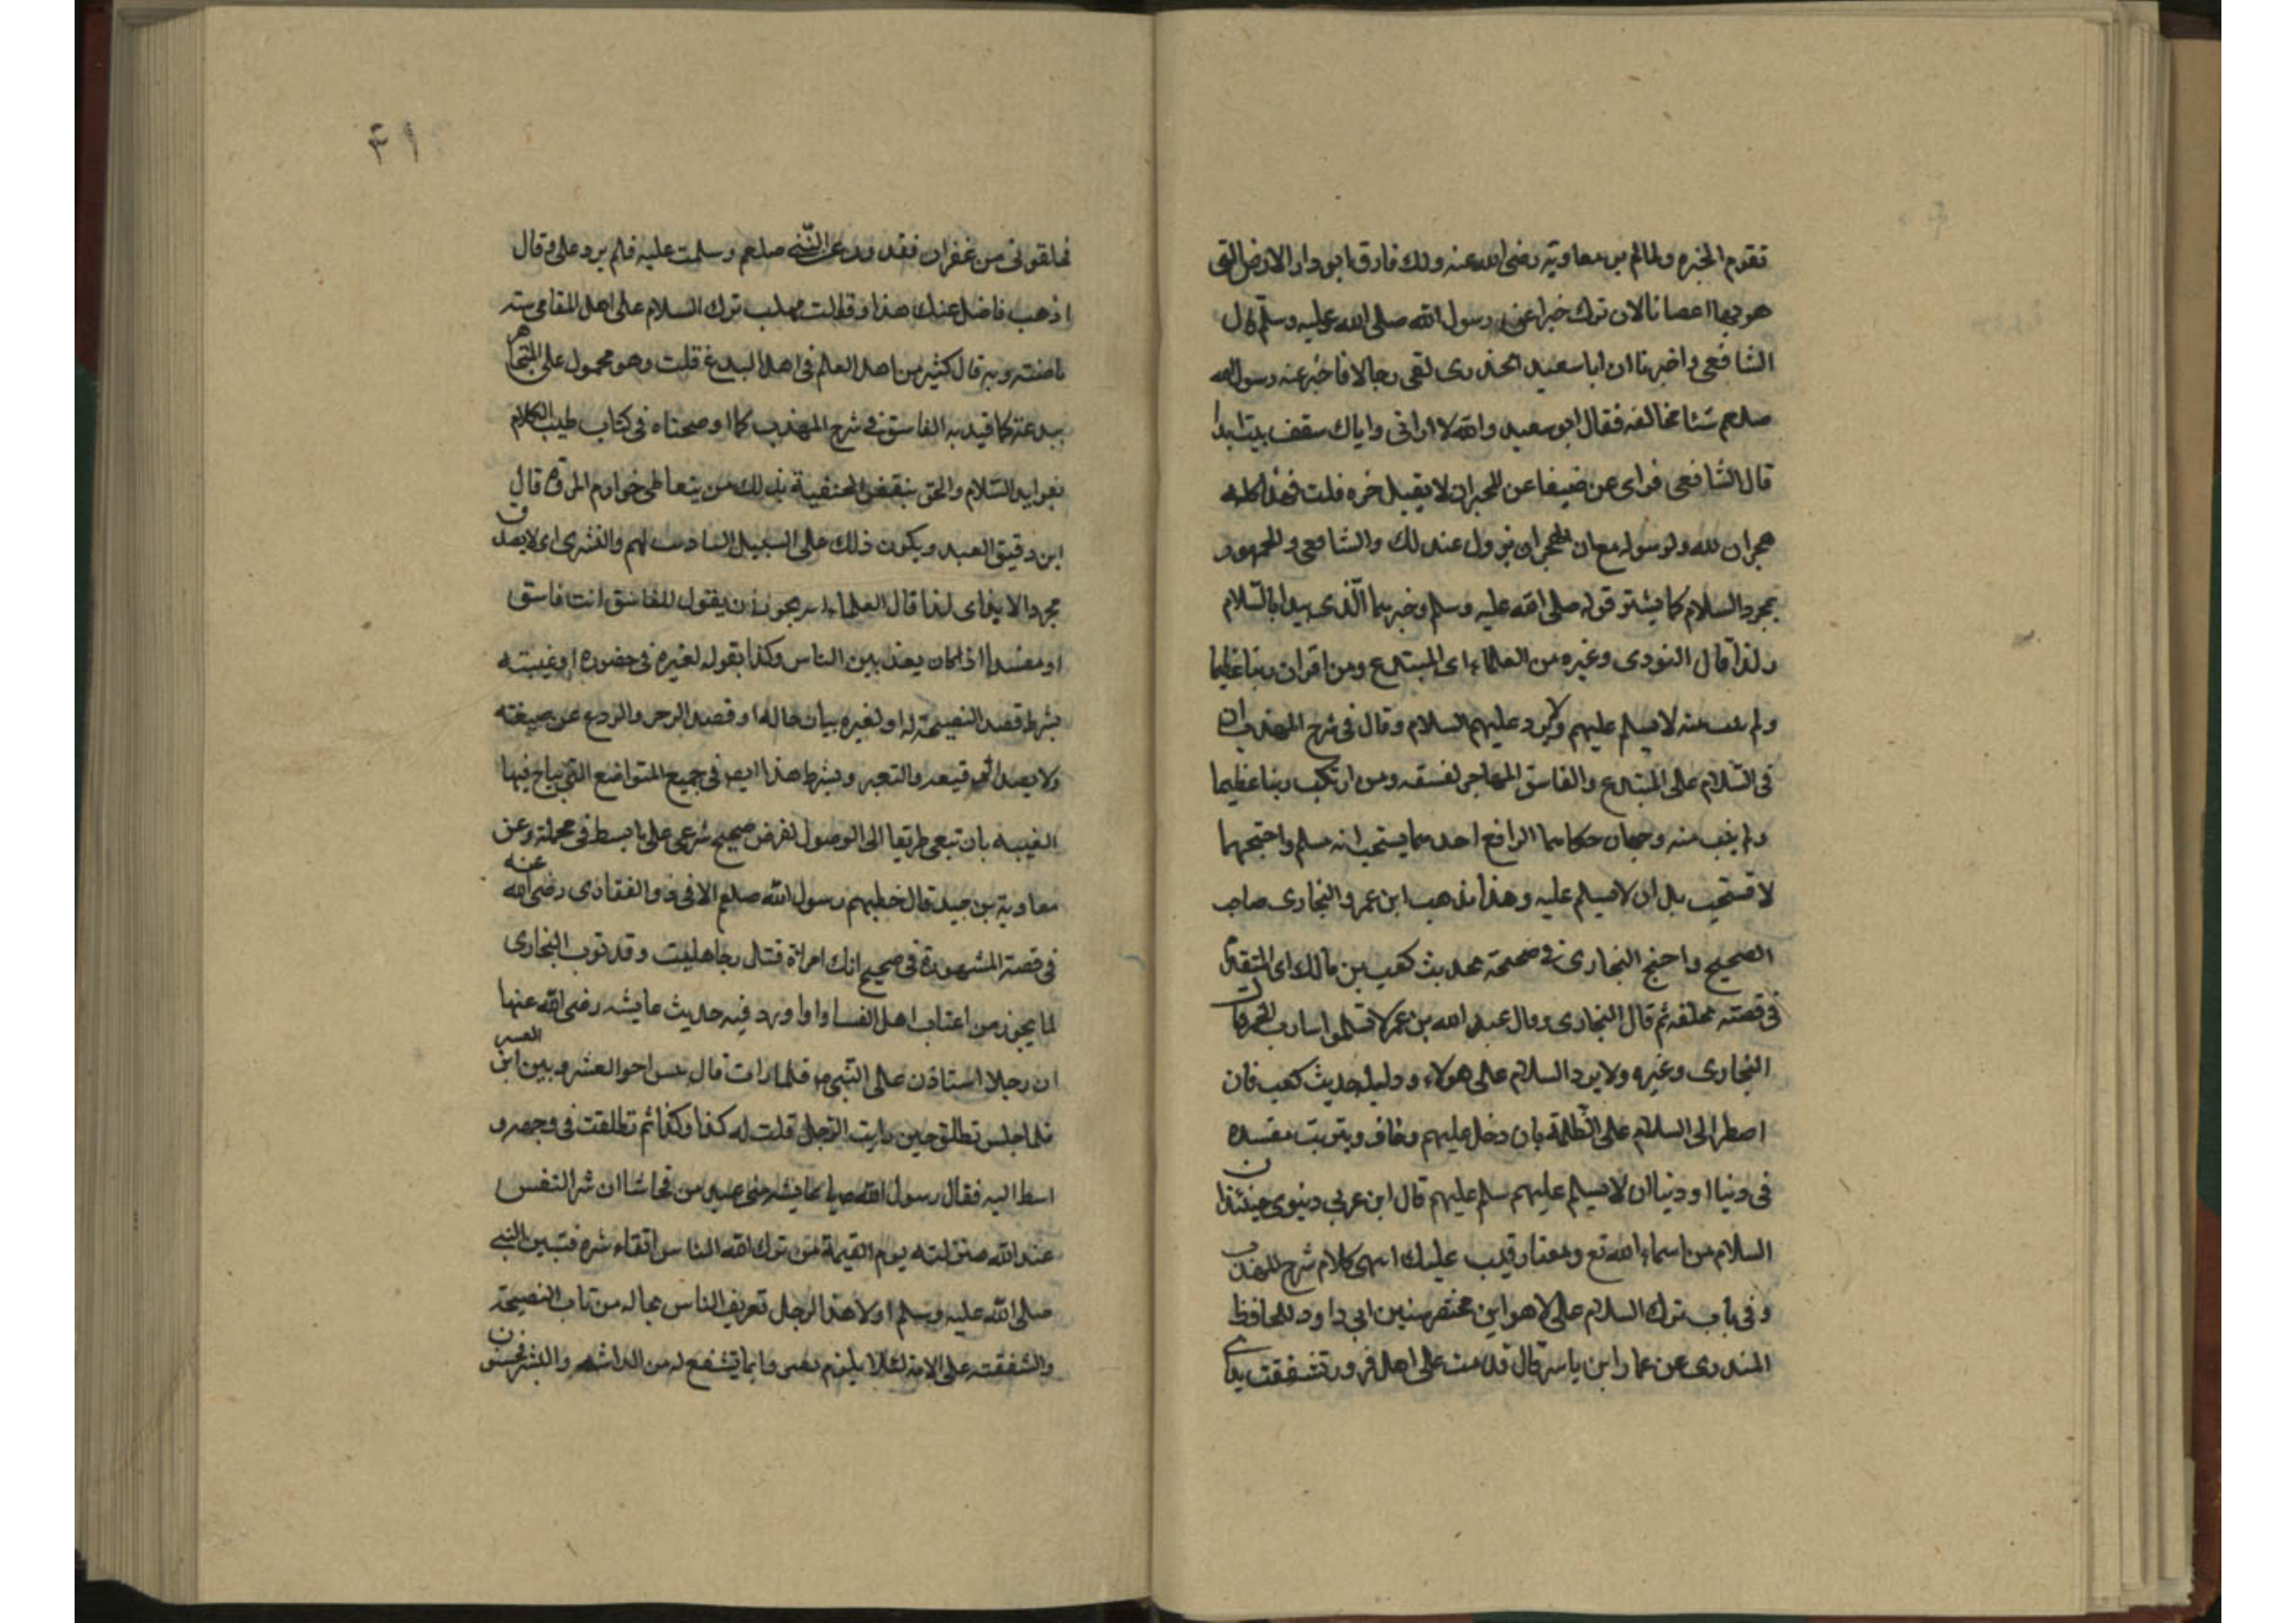 تقدم الخبره ولمالم من معاوية رضى الله عنه ولك فارق ابو دار الارض التى
هو بها اعصانا لان ترك خبرا عن رسول الله صلى الله عليه وسلم قال
الشافعى واخبرنا ان ابا سعيد الخدرى لقى رجالا فاخبر عنه رسول الله
صلعم شئا مخالفه فقال ابو سعيد والله لا اوانى واياك سقف بيت ابدا
قال الشافعى فراى عن ضيفا عن الهجران لا يقبل خره قلت فهذا كله
هجران لله ولرسوله مع ان الهجران يزول عند لك والشافعى والجمهور
بمجرد السلام كما يشتر قوله صلى الله عليه وسلم وخيرهما الذى يبدا بالسلام
ولذا قال النووى وغيره من العلماء اى المبتدع ومن اقران ذنبا عظيما
ولم يتب منه لا يسلم عليهم ولا يرد عليهم السلام وقال فى شرح المهذب ان
فى السلام على المبتدع والفاسق المجاهر لفسقه ومن ارتكب ذنبا عظيما
ولم يتب منه وجهان حكاهما الرافع احدهما يستحب انه مسلم واحتجهما
لا تستحب بل ان لا يسلم عليه وهذا مذهب ابن عمر والبخارى صاحب
الصحيح واحتج البخارى فى صحيحه بحديث كعب بن مالك اى المتقدم
فى قصته تخلفه ثم قال البخارى وقال عبد الله بن عمر لا تسلموا شارب الخمر قال
البخارى وغيره ولا يرد السلام على هولاء ودليله حديث كعب فان
اضطر الى السلام على الظلمة بان دخل عليهم وخاف ويترتب مفسده
فى دنيا او دنيا ان لا يسلم عليهم سلم عليهم قال ابن عربى وينوى حينئذ ان
السلام من اسماء الله تع ومعناه رقيب عليك انتهى كلام شرح المهذب
وفى باب ترك السلام على لاهو اين مختصر سنين ابى داود للحافظ
المنذرى عن عمار ابن ياسر قال قدمت على اهلى وتشققت يداى
فخلقونى من غفران فقد وردت على النبى صلعم وسلمت عليه فلم يرد على وقال
اذهب فاغسل عنك هذا وقالت مهلب ترك السلام على اهل المعاصى سنه
ماضنته وبه قال كثير من اهل العلم فى اهل البدع قلت وهو محمول على المتجاهر
ببدعته كما قيد به الفاسق فى شرح المهذب كما اوضحناه فى كتاب طيب الكلام
بفوايد السلام والحق بنقبض الحنفية بذلك من يتعاطى خوارم المروة قال
ابن دقيق العيد ويكون ذلك على السبيل التاديب لهم والتشرى اى لا بقصد
مجرد الايذاى لذا قال العلماء يجوز ان يقول للفاسق انت فاسق
او مفسد اذا كان يعذ بين الناس وكذا يقوله لغيره فى حضوره او غيبته
بشرط قصد النصيحة له او لغيره ببيان حاله او قصد الزجر والردع عن صيغته
ولا يقصد الوقيعه والتعير ويشرط هذا ايضا فى جميع المتواضع التى يباح فيها
الغيبه بان تبغى طريقا الى الوصول لغرض صحيح شرعى على ما بسط فى محله وعن
معاوية بن حيد قال خطبهم رسول الله صلعم الا فى ذو الغفارى رضى الله عنه
فى قصة المشهورة فى صحيح انك امراة فتال بجاهليت وقد توب البخارى
لما يجوز من اغتاب اهل الفسا واورد فيه حديث عايشه رضى الله عنها
ان رجلا استاذن على النبى م فلما رات قال بئس اخو العشر وبين ابن العسير
فلما جلس تطلق حين رايت الرجل قلت له كذا وكذا ثم تطلقت فى وجهه و
اسط اليه فقال رسول الله ص يا عايشه متى عهدى من فحاشا ان شر النفس
عند الله منزلته يوم القيمة من تركه الناس اتقاء شره فتبين النبى
صلى الله عليه وسلم اولا هذا الرجل تعريف الناس بحاله من باب النصيحة
والشفقته على الامته لئلا يلزم نفس وانما تشفع له من الداشهر والبشر تحسن